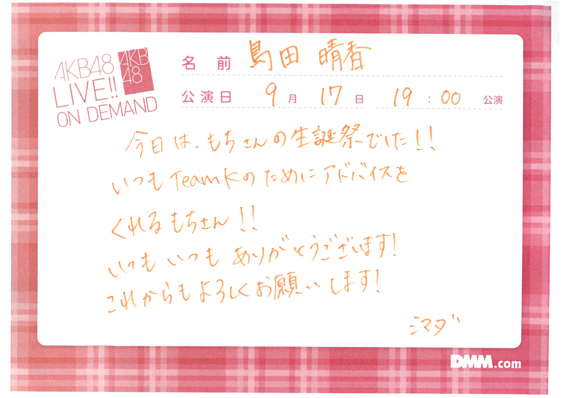 AKB48
LIVE!!
ON DEMAND
AKB
48
名前 島田 晴香
公演日 9月 17日 19:00 公演
今日は、もちさんの生誕祭でした!!
いつもTeamKのためにアドバイスを
くれるもちさん!!
いつもいつもありがとうございます!
これからもよろしくお願いします!
シマダ
DMM.com